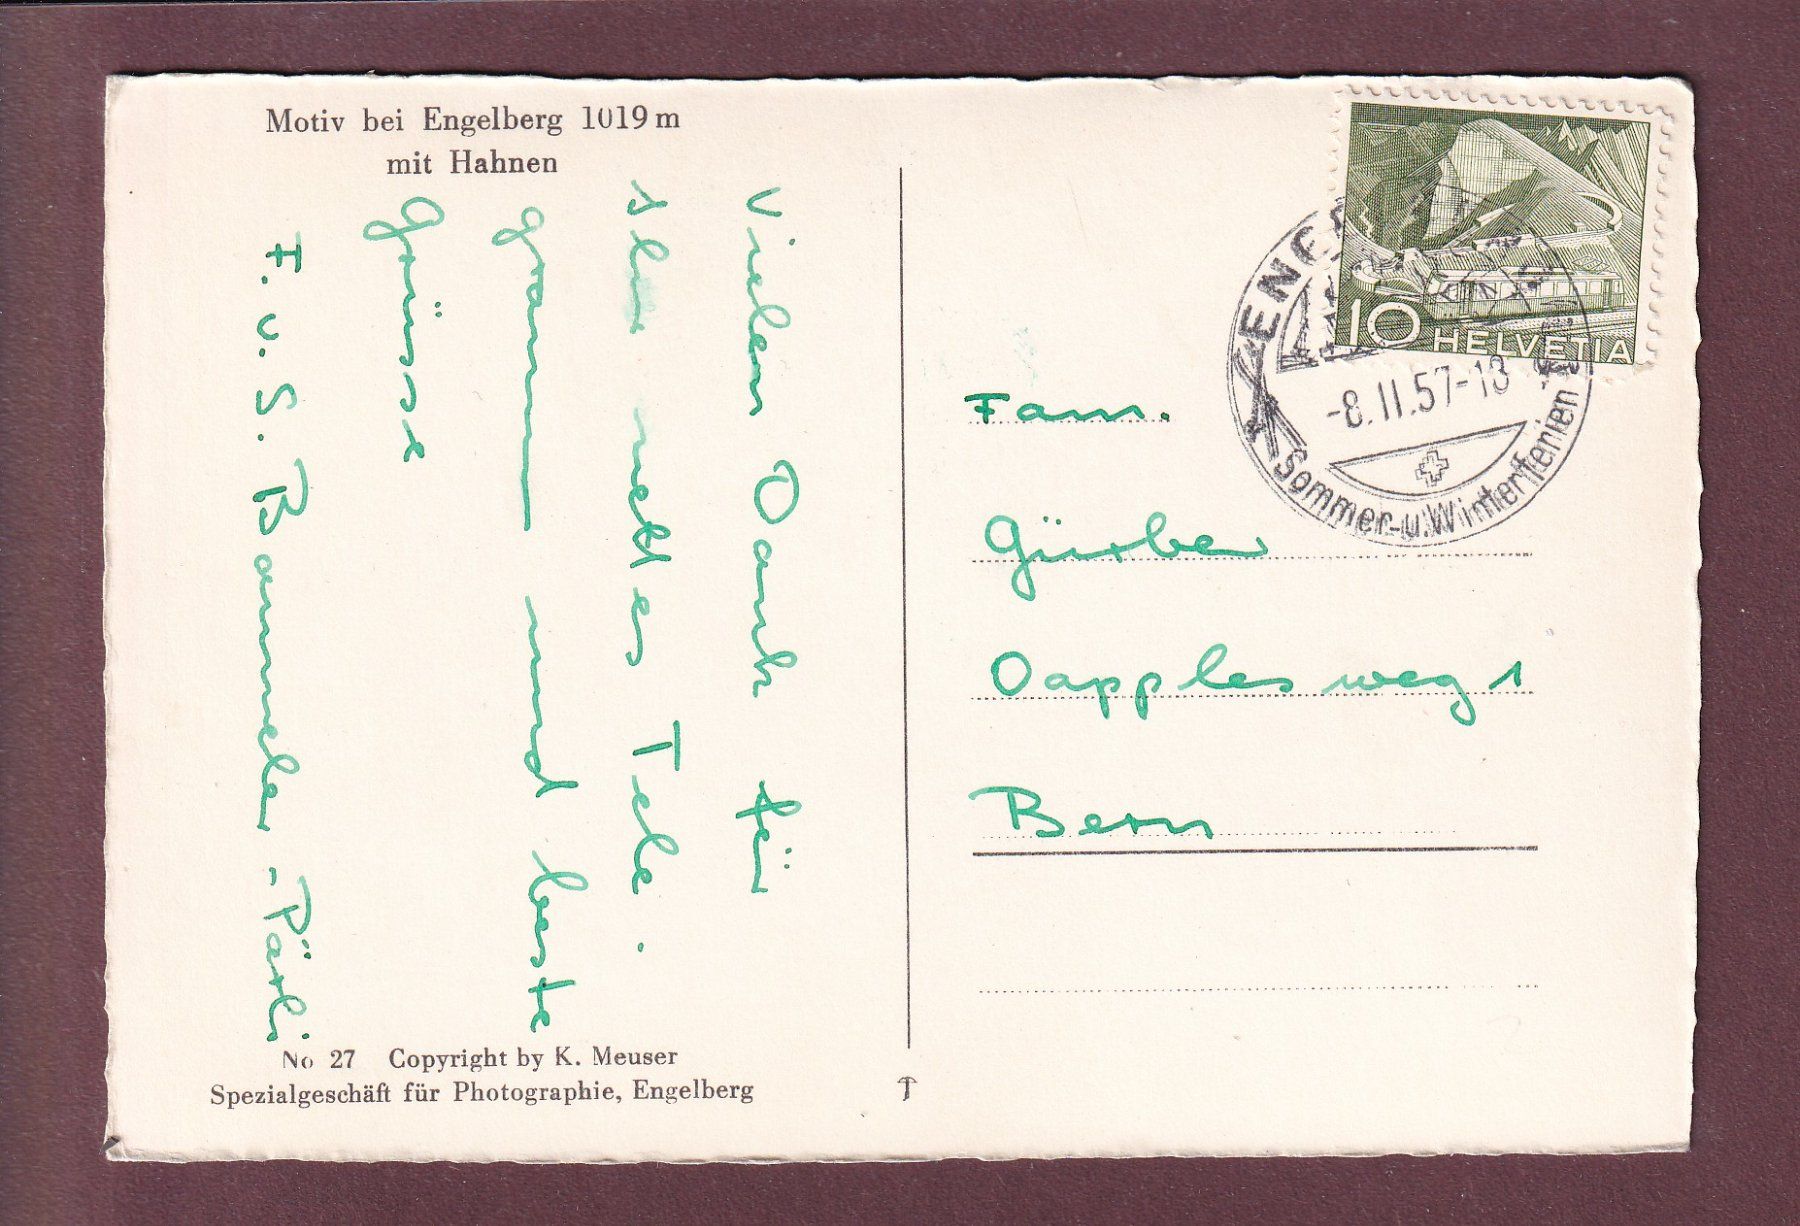 Motiv bei Engelberg 1019 m
mit Hahnen
Vielen Dank für
Ihr nettes Tele.
gramm und beste
Grüsse
F. u. S. -Pärli
No 27 Copyright by K. Meuser
Spezialgeschäft für Photographie, Engelberg
10 HELVETIA
-8.II.57-13
Sommer-u.Winterferien
Fam.
Gürber
Dapplesweg 1
Bern